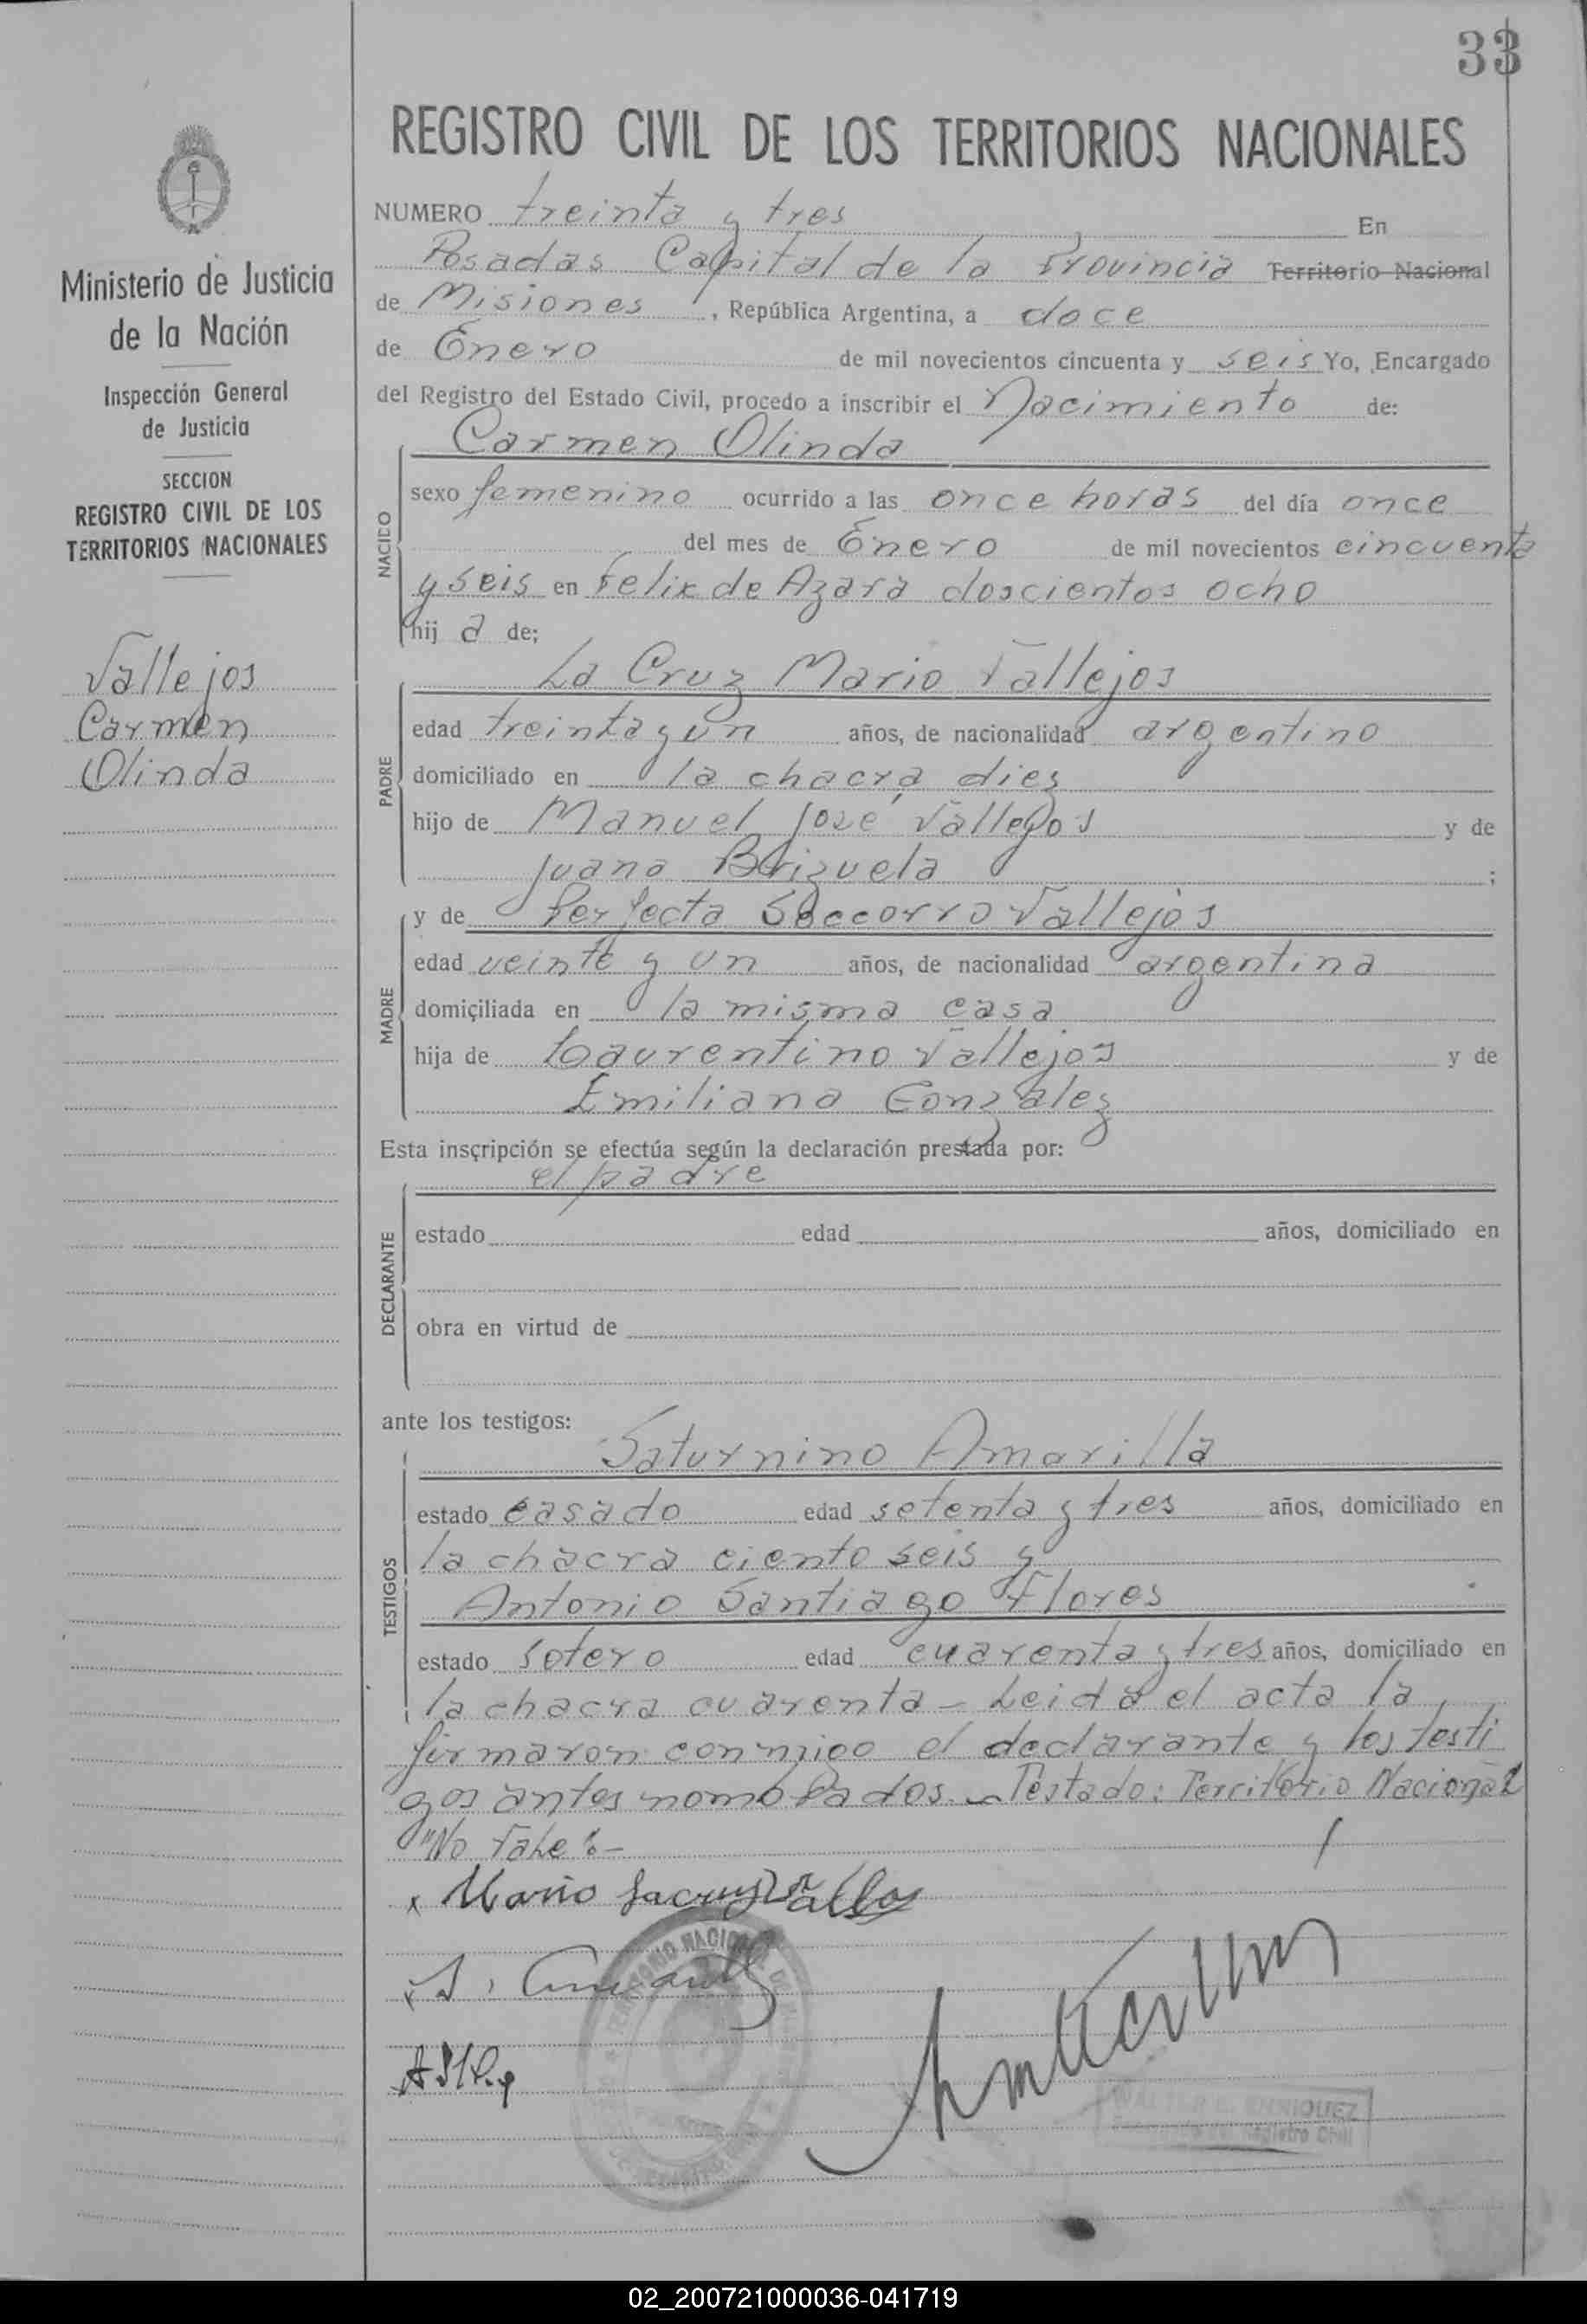 33
REGISTRO CIVIL DE LOS TERRITORIOS NACIONALES
Ministerio de Justicia
de la Nación
Inspección General
de Justicia
SECCION
REGISTRO CIVIL DE LOS
TERRITORIOS NACIONALES
Vallejos
Carmen
Olinda
NUMERO treinta y tres En
Posadas Capital de la Provincia Territorio Nacional
de Misiones, República Argentina, a doce
de Enero de mil novecientos cincuenta y seis Yo, Encargado
del Registro del Estado Civil, procedo a inscribir el Nacimiento de:
NACIDO
Carmen Olinda
sexo femenino ocurrido a las once horas del día once
del mes de Enero de mil novecientos cincuenta
y seis en Felix de Azara doscientos ocho
hij a de;
PADRE
La Cruz Mario Vallejos
edad treinta y un años, de nacionalidad argentino
domiciliado en la chacra diez
hijo de Manuel José Vallejos y de
Juana Brizuela ;
MADRE
y de Perfecta Soccorro Vallejos
edad veinte y un años, de nacionalidad argentina
domiciliada en la misma casa
hija de Laurentino Vallejos y de
Emiliana Gonzalez
Esta inscripción se efectúa según la declaración prestada por:
DECLARANTE
el padre
estado edad años, domiciliado en
obra en virtud de
ante los testigos:
TESTIGOS
Saturnino Amarilla
estado casado edad setenta y tres años, domiciliado en
la chacra ciento seis y
Antonio Santiago Flores
estado sotero edad cuarenta y tres años, domiciliado en
la chacra cuarenta – Leida el acta la
firmaron conmigo el declarante y los testi
gos antes nombrados. – Testado: Territorio Nacional
"No Vale":–
x Mario Lacruz Vallejos
x S. Amarilla
ENRIQUEZ
Registro Civil
02_200721000036-041719